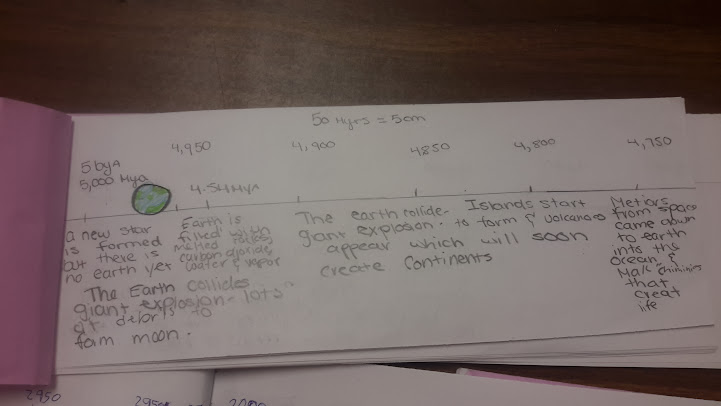 50 Myrs = 5cm
5 bya
5,000 Mya
4,950
4,900
4850
4,800
4,750
4.54 Mya
a new star
is formed
but there is
no earth yet
Earth is
filled with
melted rocks,
carbon dioxide,
water & vapor
The Earth collides
giant explosion - lots
of debris to
form moon.
The earth collide-
giant explosion.
appear which will soon
create continents
Islands start
to form & volcanoes
Metiors
from space
came down
to earth
into the
ocean &
Make
that
creat
life
2950